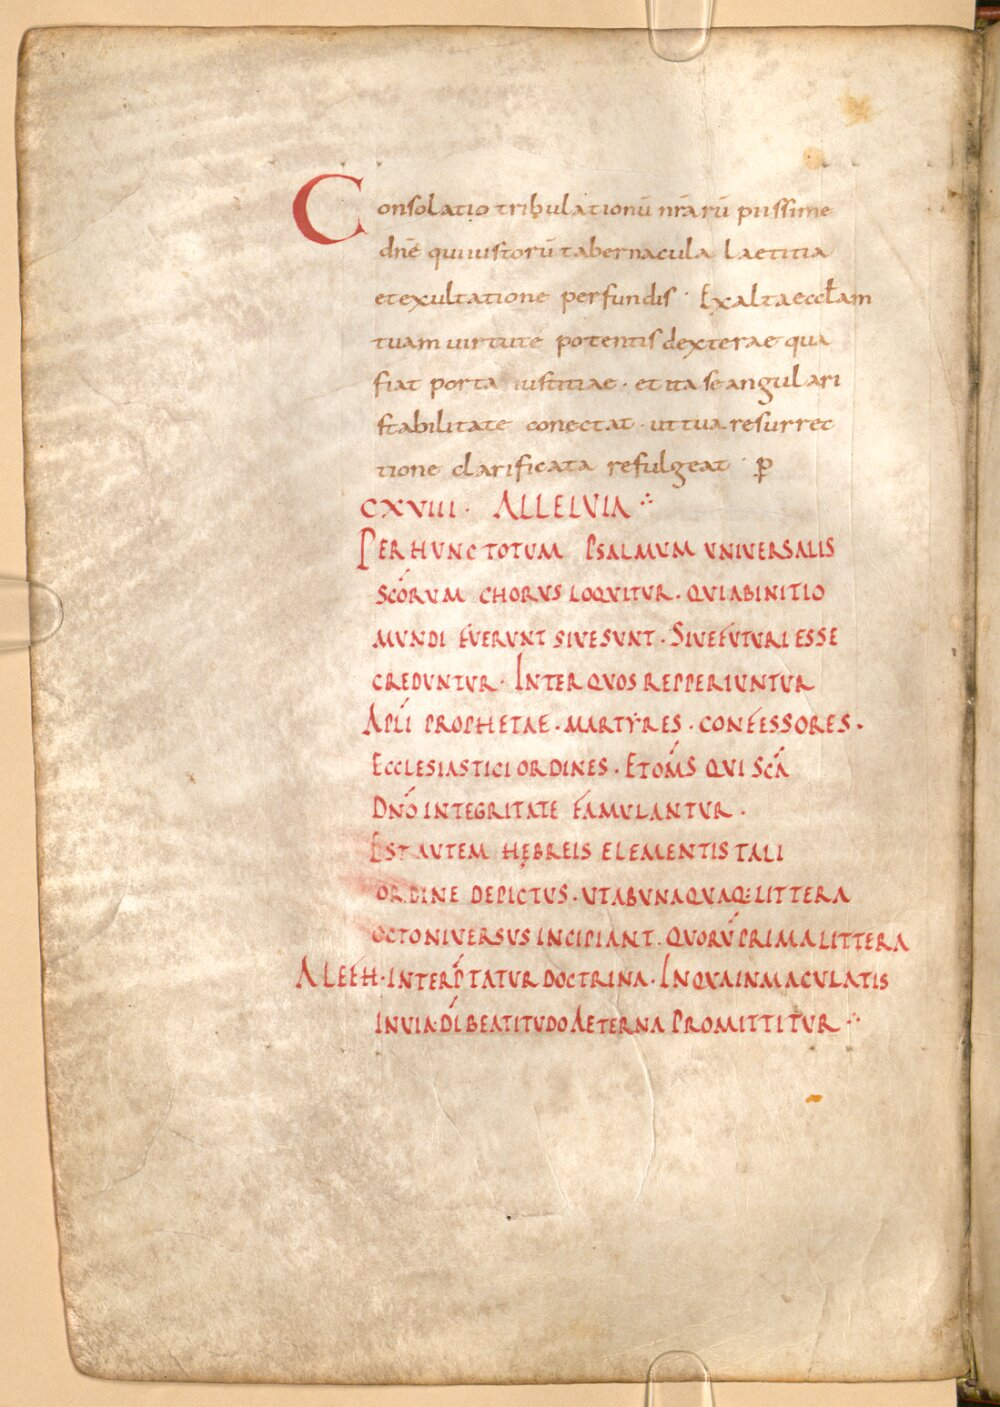 Consolatio tribulationū nr̄arū piissime
dnē qui iustorū tabernacula laetitia
et exultatione perfundis · Exalta eccl̄am
tuam uirtute potentis dexterae qua
fiat porta iustitiae · et ita se angulari
stabilitate conectat · ut tua resurrec
tione clarificata refulgeat · p̄
CXVIII · ALLELVIA ∴
PER HUNC TOTUM PSALMVM UNIVERSALIS
SC̄ORVM CHORVS LOQVITVR · QVI AB INITIO
MVNDI FVERVNT SIVE SVNT · SIVE FVTVRI ESSE
CREDVNTVR · INTER QVOS REPPERIVNTVR
APL̄I PROPHETAE · MARTYRES · CONFESSORES ·
ECCLESIASTICI ORDINES · ET OM̄S QVI SC̄A
DN̄O INTEGRITATE FAMVLANTVR ·
EST AVTEM HEBREIS ELEMENTIS TALI
ORDINE DEPICTVS · VT AB VNAQVAQ: LITTERA
OCTONI VERSVS INCIPIANT · QVORV̄ PRIMA LITTERA
ALEPH · INTERP̄TATVR DOCTRINA · IN QVA INMACVLATIS
IN VIA D̄I BEATITVDO AETERNA PROMITTITVR ∴